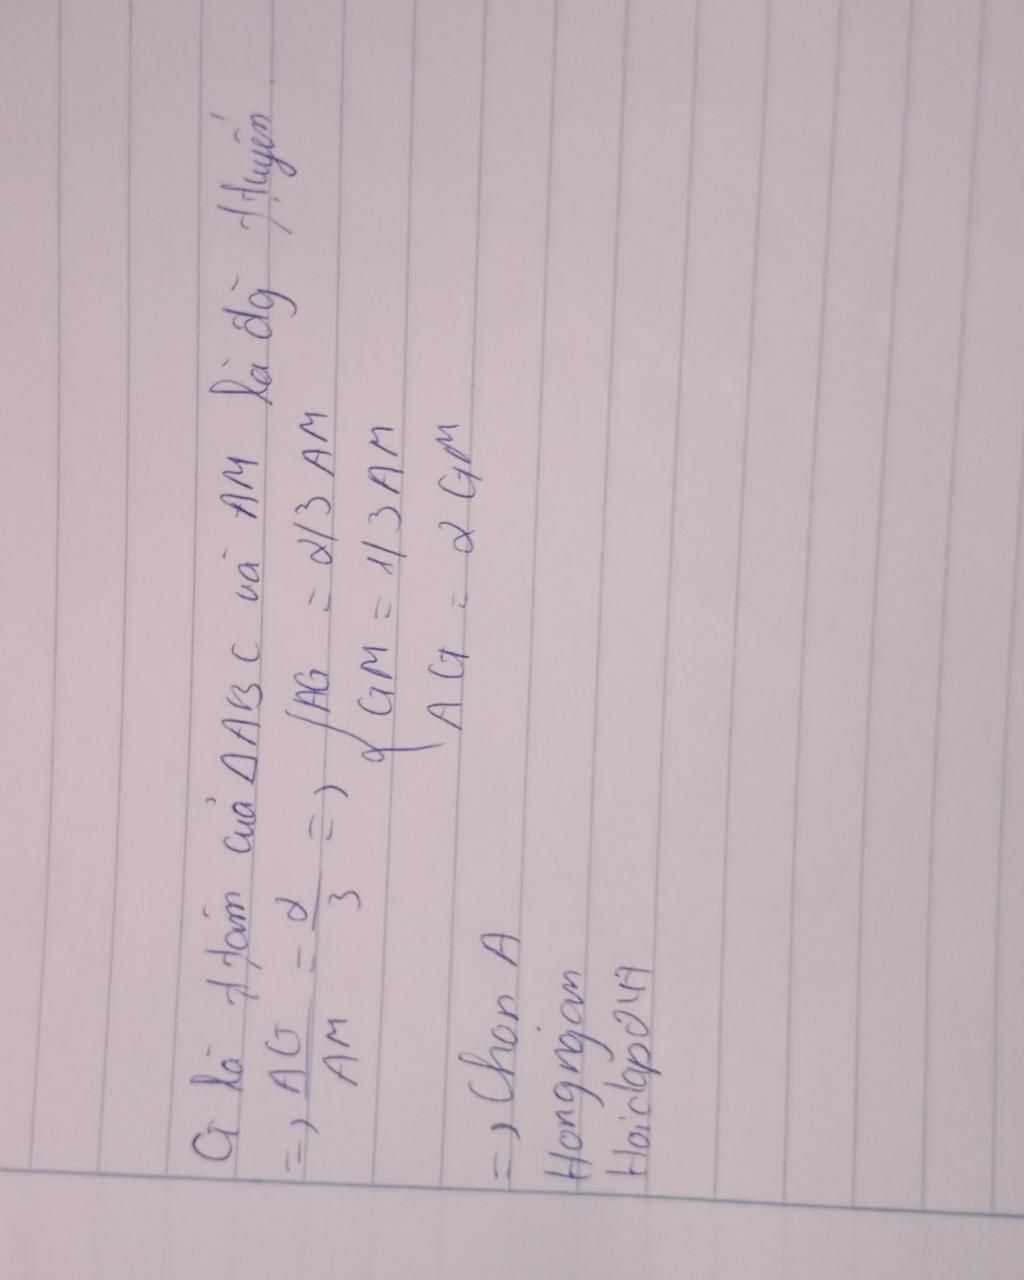 G là ttâm của ΔABC và AM là đg ttuyến
=> AG/AM = 2/3 => { AG = 2/3 AM
GM = 1/3 AM
AG = 2 GM
=> Chọn A
Hongngan
Hoidap247